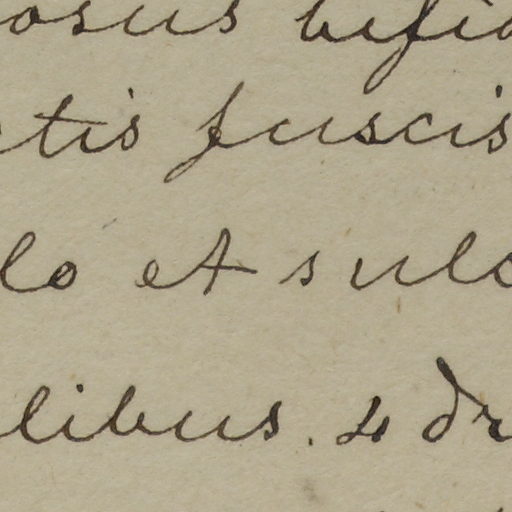 osus bifid
tis fuscis
lo et sulc
libus. 4 dr